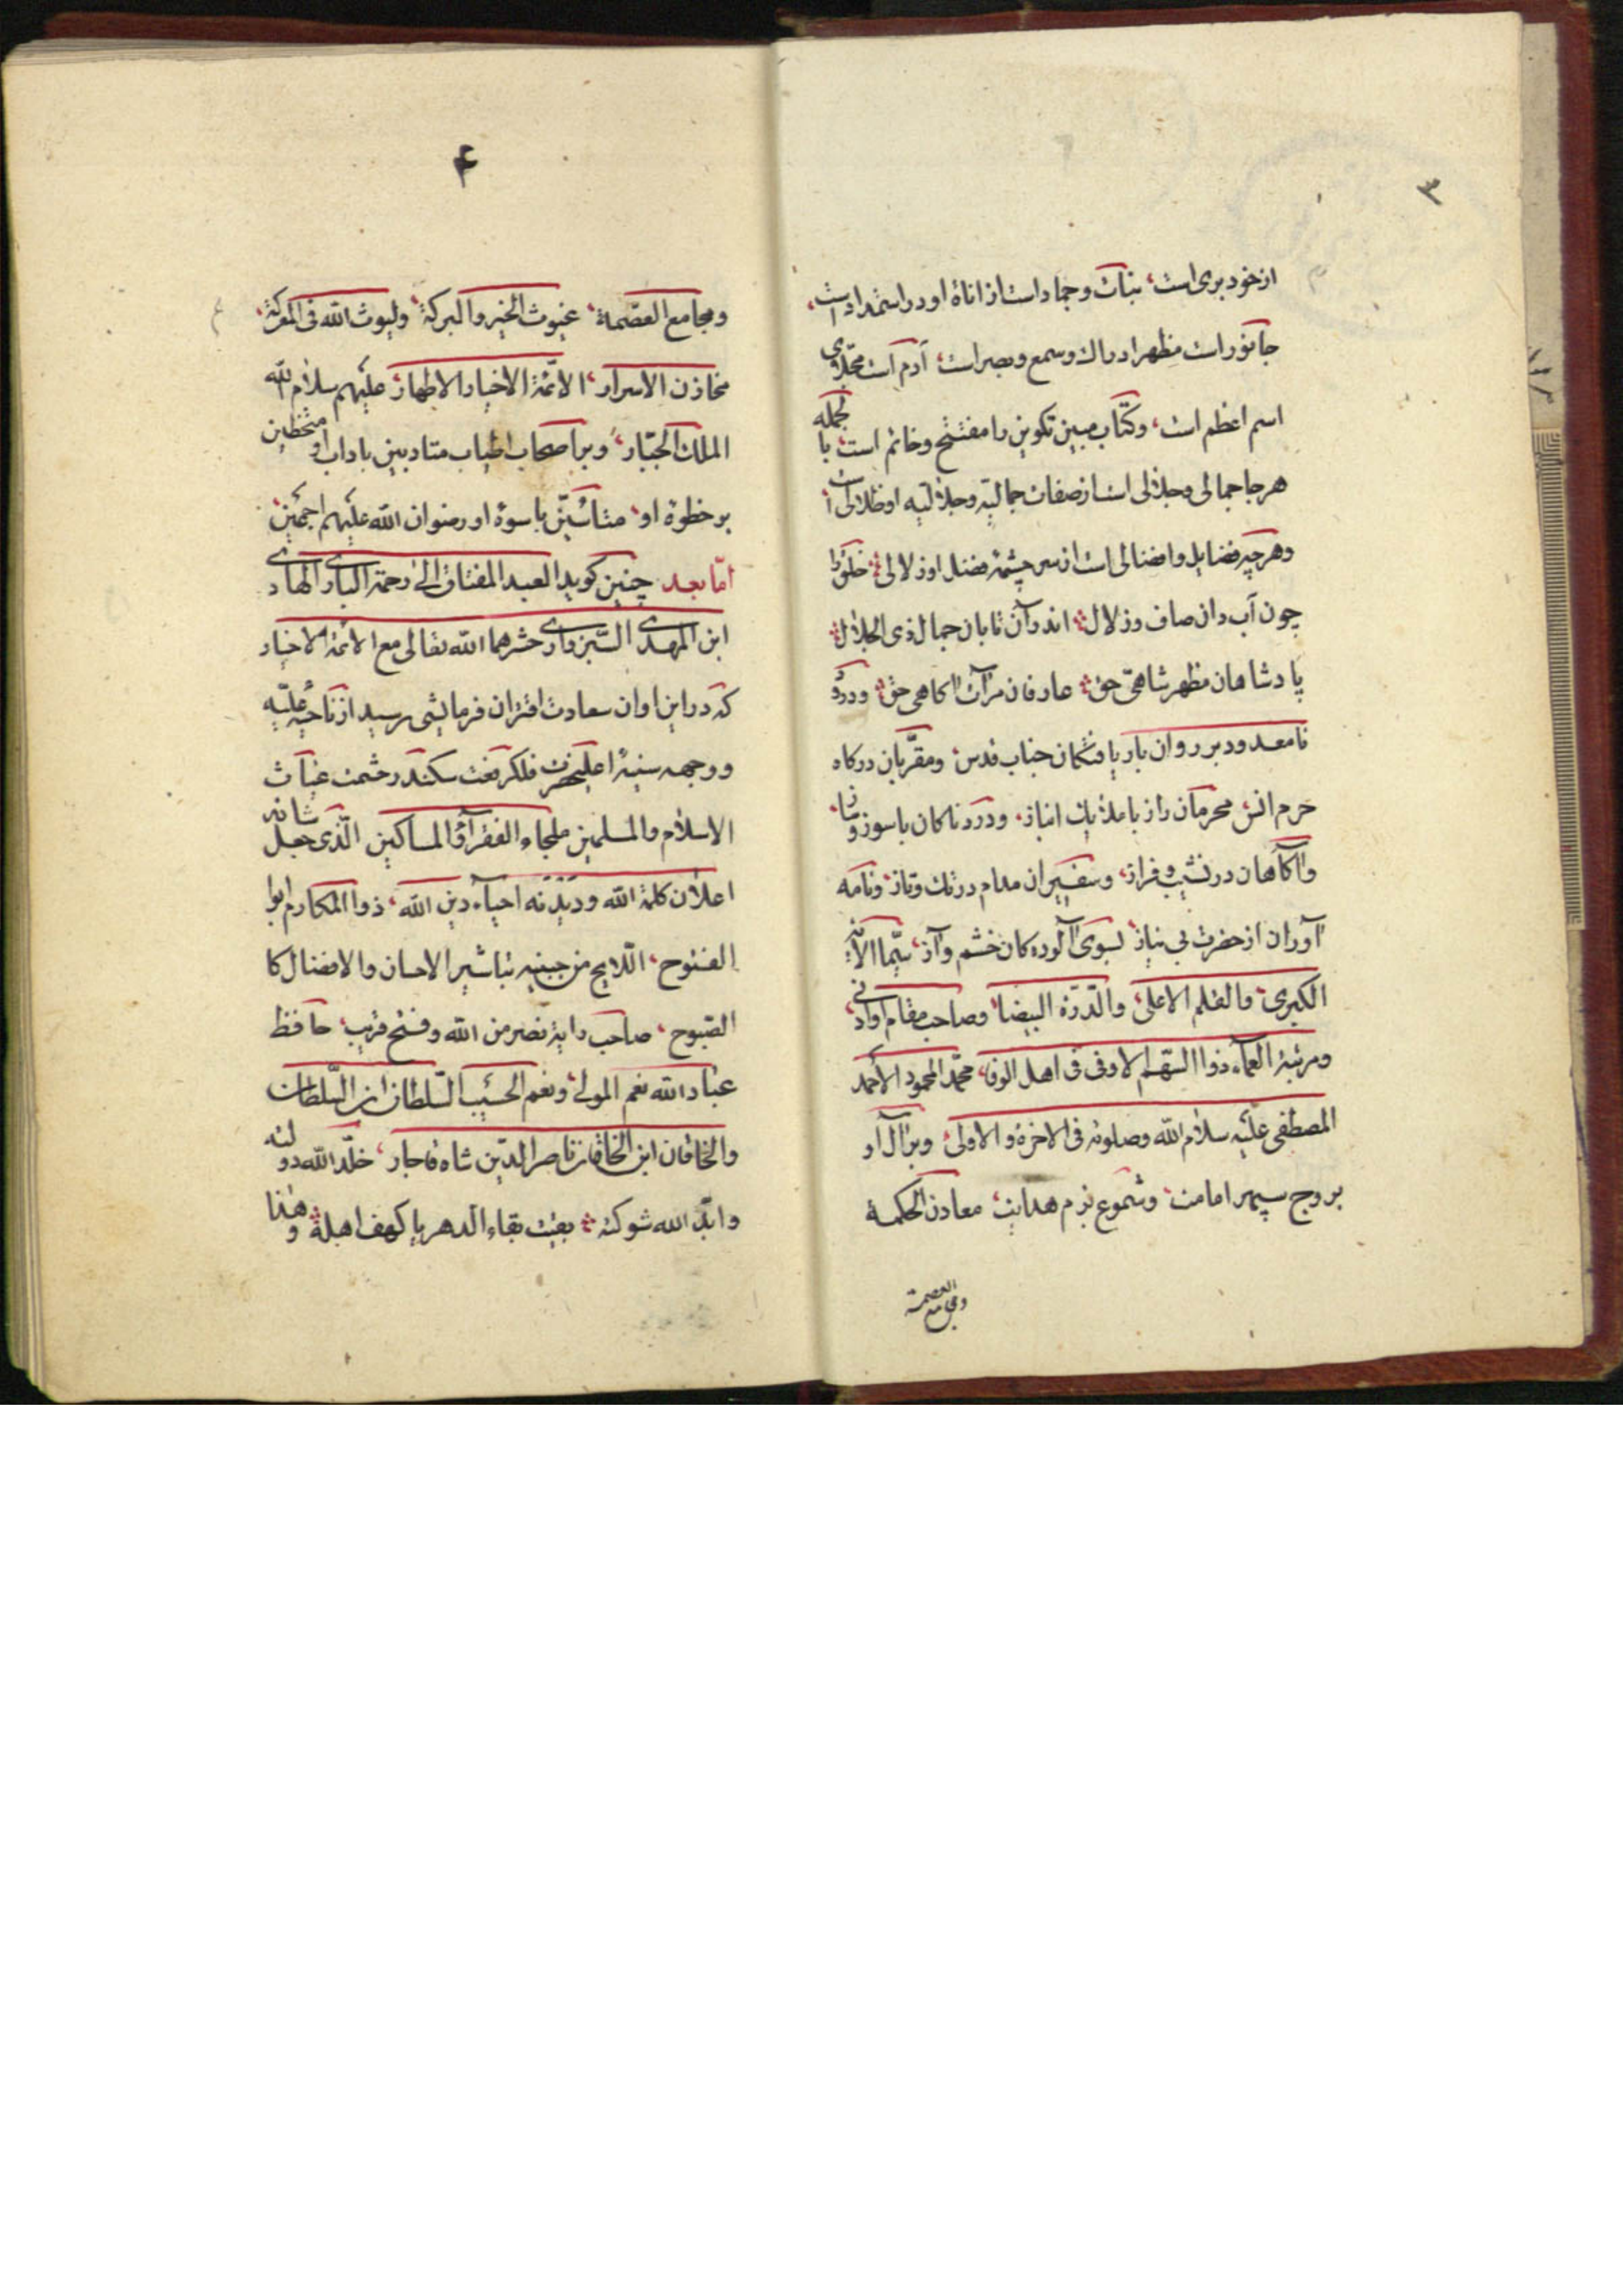 ۳
از خود بری است، نبات و جماد است از اناهٔ او در استمداد است،
جانور است مظهر ادراک و سمع و بصر است، آدم است مجلای
اسم اعظم است، و کتاب مبین تکوین را مفتتح و خاتم است، بالجمله
هر جا جمالی و جلالی است از صفات جمالیّه و جلالیّه او ظلالی است
و هر چه فضایل و افضالی است از سرچشمهٔ فضل او زلالی خلق را
چون آب دان صاف و زلال اندر آن تابان جمال ذی الجلال
پادشاهان مظهر شاهیّ حق عارفان مرآت آکاهی حق و درود
نامعدود بر روان باریافتکان جناب قدس، و مقرّبان درکاه
حرم انس محرمان راز با ملایک انباز، و دردناکان باسوز و ساز،
و آکاهان در نشیب و فراز، و سفیران مدام در تک و تاز، و نامه
آوران از حضرت بی نیاز، بسوی آلوده کان خشم و آز، سیّما الآیه
الکبری، والقلم الاعلی، والدّرّة البیضا، و صاحب مقام او ادنی،
و مرتبة العماء ذوا السّهم الاوفی فی اهل الوفا، محمّد المحمود الأحمد
المصطفی علیه سلام الله و صلوته فی الاخرة و الاولی، و بر آل او
بروج سپهر امامت، و شموع بزم هدایت، معادن الحکمة
و مجامع العصمة
۴
و مجامع العصمة، غیوث الخیر و البرکة، و لیوث الله فی المعرکة،
مخازن الاسرار، الائمّة الاخیار الاطهار، علیهم سلام الله
الملک الجبّار، و بر اصحاب اطیاب متادبین باداب او متخطین
بر خطوة او، متاسّین باسوهٔ او رضوان الله علیهم اجمعین،
امّا بعد چنین کوید العبد المفتاق الی رحمة الباری الهادی
ابن المهدی السّبزواری حشرهما الله تعالی مع الائمة الاخیار
که در این اوان سعادت اقتران فرمایشی رسید از ناحیهٔ علیّه
و وجهه سنیهٔ اعلیحضرت فلک رفعت سکندر حشمت غیاث
الاسلام والمسلمین ملجاء الفقرآء والمساکین الّذی جعل شانه
اعلان کلمة الله و دیدنه احیآء دین الله، ذوا المکارم ابوا
الفتوح، اللّایح من جبینه تباشیر الاحسان والافضال کا
الصّبوح، صاحب رایة نصر من الله و فتح قریب، حافظ
عباد الله نعم المولی، و نعم الحسیب السّلطان ابن السّلطان
والخاقان ابن الخاقان ناصر الدّین شاه قاجار، خلّد الله دولته
و ابّد الله شوکته بقیت بقاء الدهر یا کهف اهله و هذا